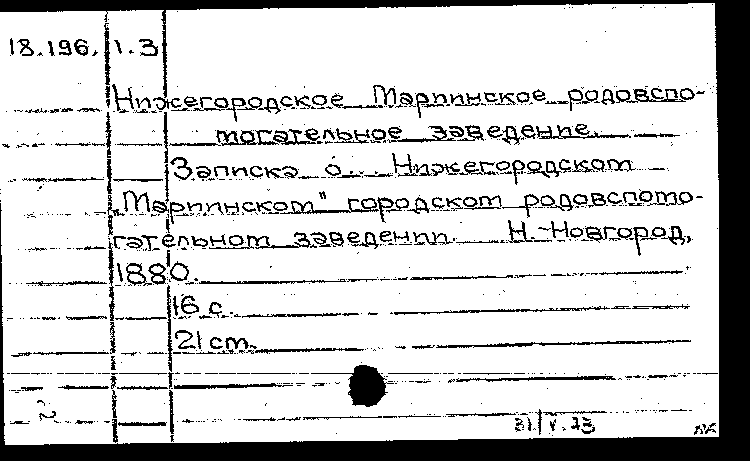 18.196. 1.3
Нижегородское Мариинское родовспо-
могательное заведение.
Записка о... Нижегородском
„Мариинском" городском родовспомо-
гательном заведении. Н.-Новгород,
1880.
16 с.
21 см.
31/V.23